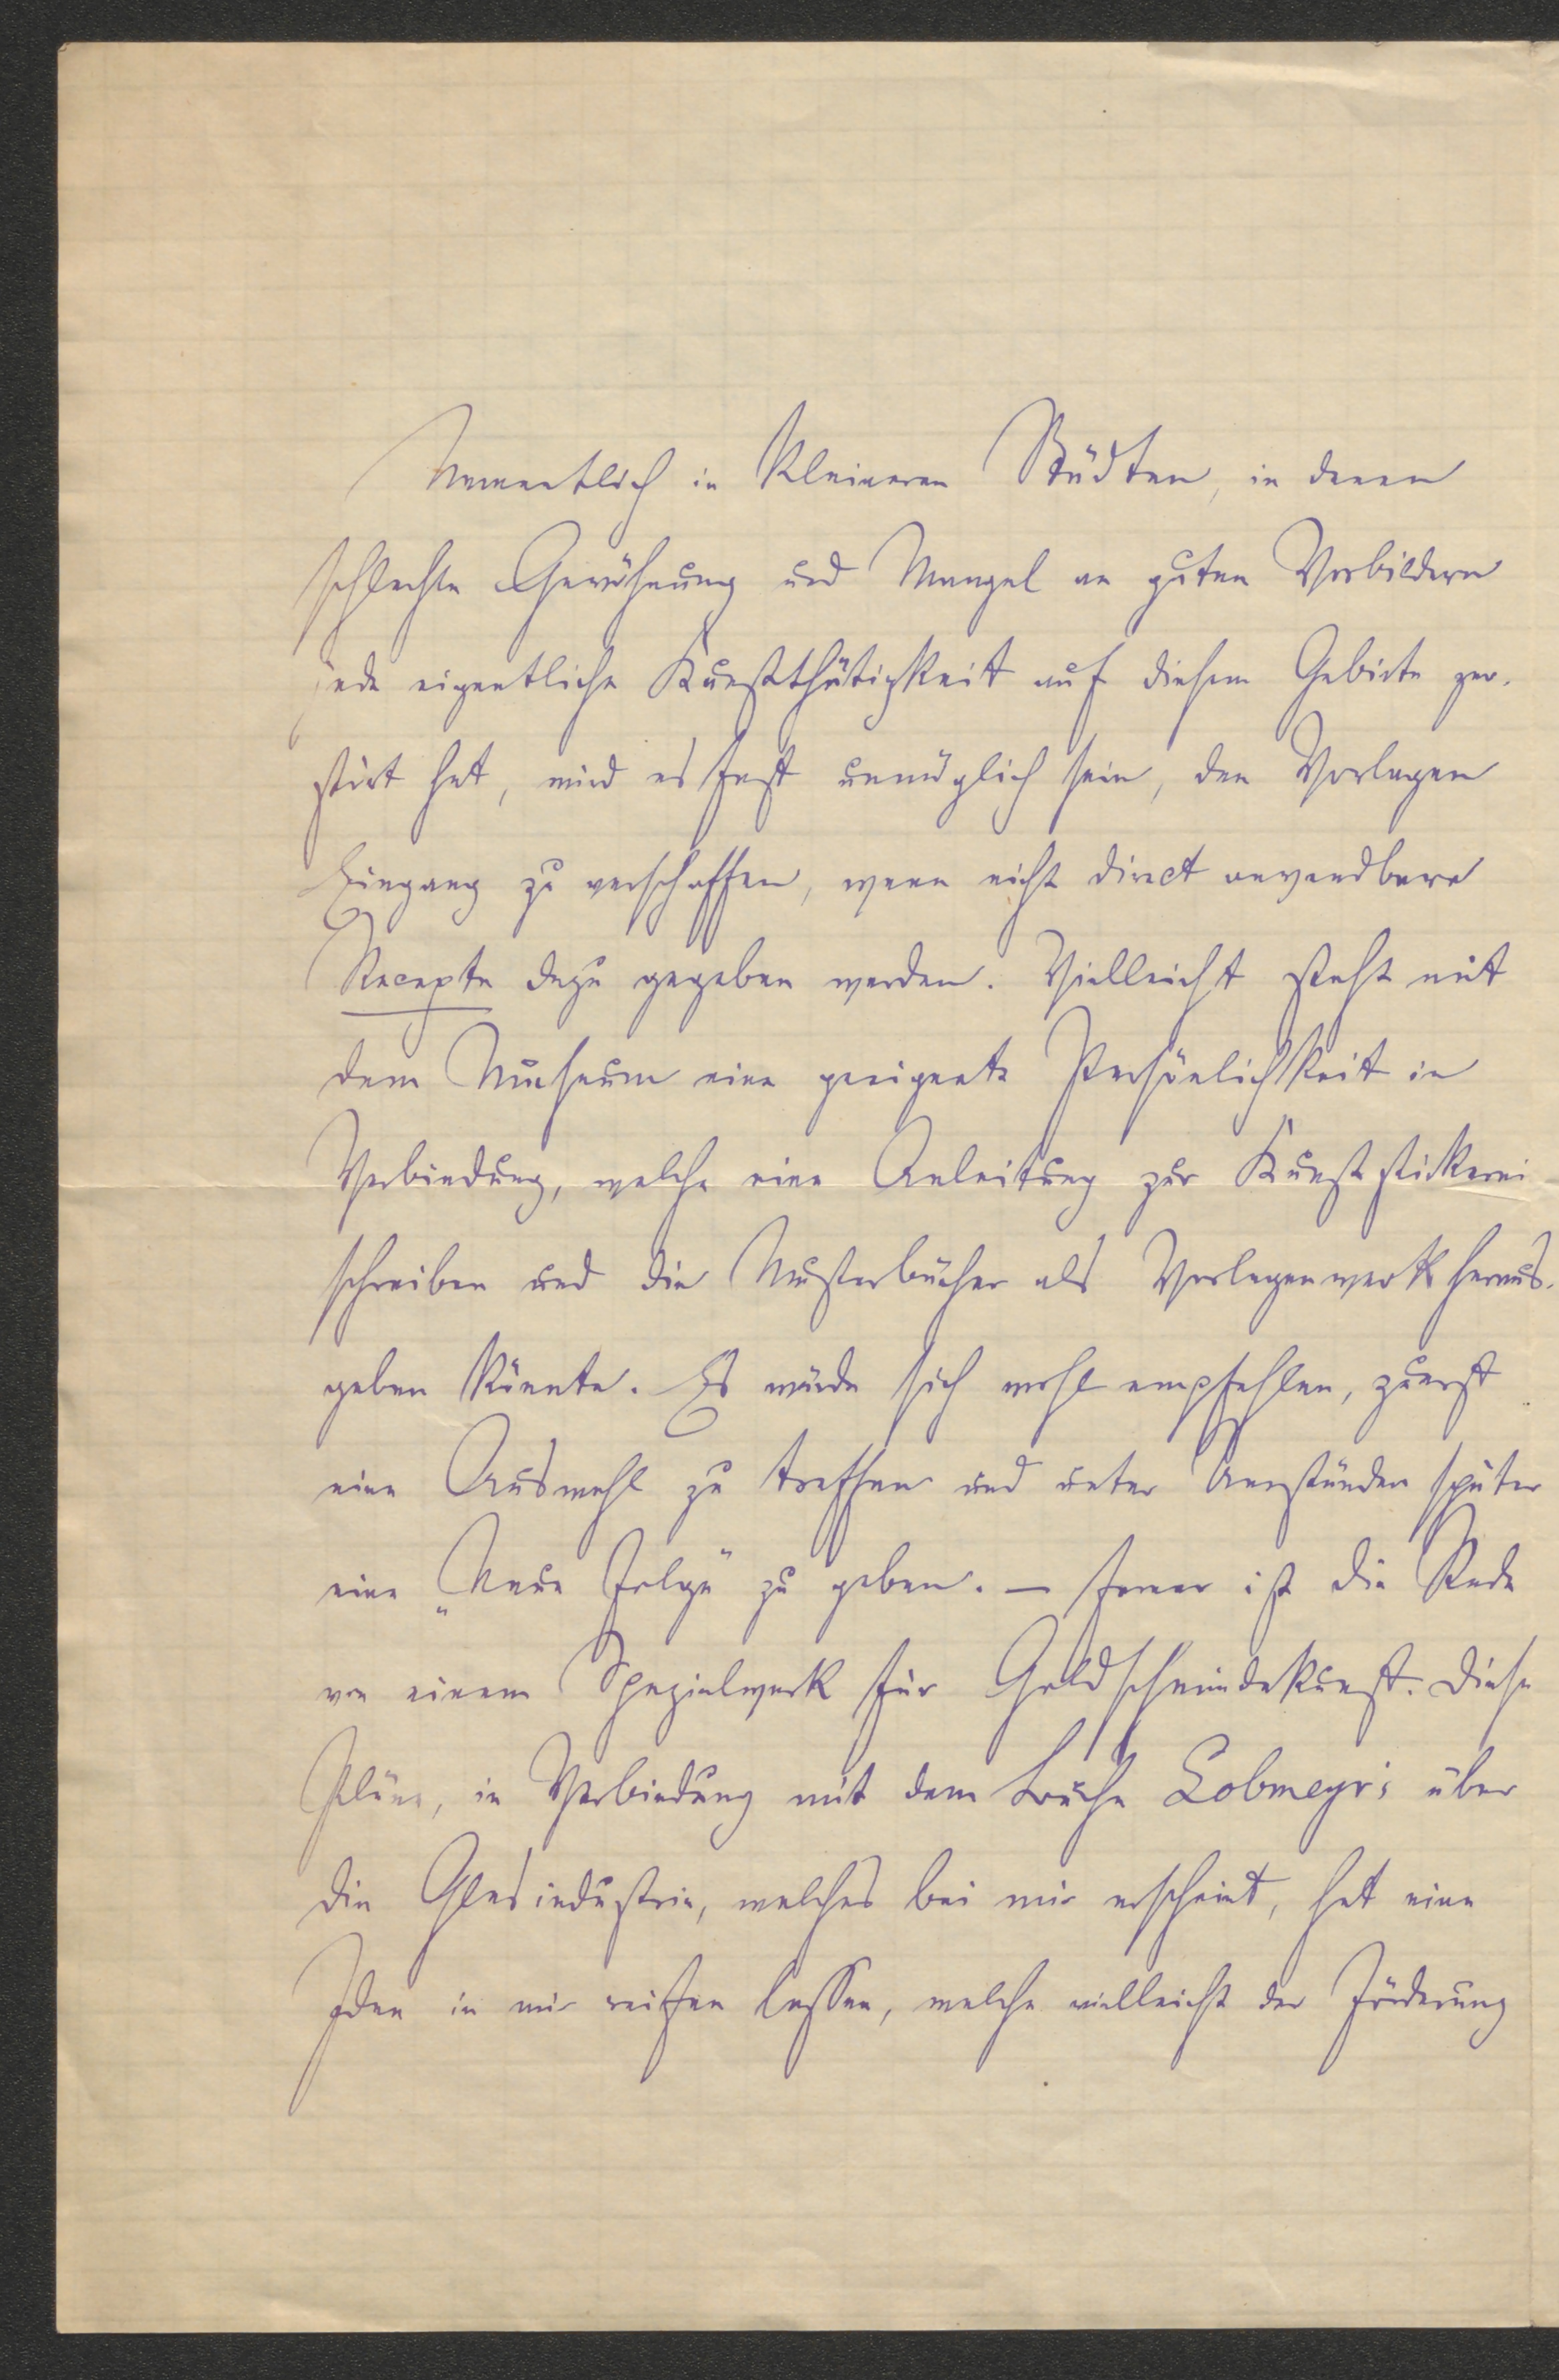 Namentlich in kleineren Städten, in denen
schlechte Gewöhnung und Mangel an guten Vorbildern
jede eigentliche Kunstthätigkeit auf diesem Gebiete zer-
stört hat, wird es fast unmöglich sein, den Vorlagen
Eingang zu verschaffen, wenn nicht direct anwendbare
Recepte dazu gegeben werden. Vielleicht steht mit
dem Museum eine geeignete Persönlichkeit in
Verbindung, welche eine Anleitung zur Kunststickerei
schreiben und die Musterbücher als Vorlagenwerk heraus-
geben könnte. Es würde sich wohl empfehlen, zuerst
eine Auswahl zu treffen und unter Umständen später
eine „Neue Folge" zu geben. – Ferner ist die Rede
von einem Spezialwerk für Goldschmiedekunst. Diese
Pläne, in Verbindung mit dem Buche Lobmeyr's über
die Glasindustrie, welches bei mir erscheint, hat eine
Idee in mir reifen lassen, welche vielleicht der Förderung